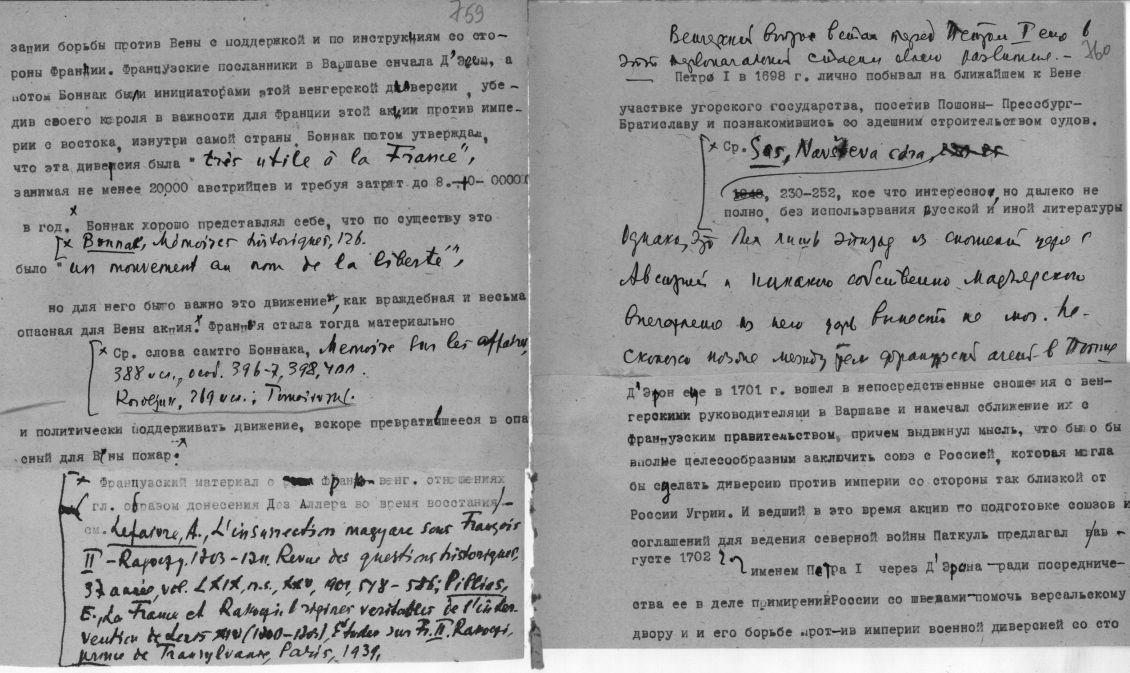 759
зации борьбы против Вены с поддержкой и по инструкциям со сто-
роны Франции. Французские посланники в Варшаве снчала Д'Эрон, а
потом Боннак были инициаторами этой венгерской диверсии, убе-
див своего короля в важности для Франции этой акции против импе-
рии с востока, изнутри самой страны. Боннак потом утверждал,
что эта диверсия была "très utile à la France",
занимая не менее 20000 австрийцев и требуя затрат до 8.-10- 00000
в год.x Боннак хорошо представлял себе, что по существу это
x Bonnac, Mémoires historiques, 126.
было "un mouvement au nom de la liberté",
но для него было важно это движение, как враждебная и весьма
опасная для Вены акция.x Франция стала тогда материально
x Ср. слова самтго Боннака, Memoire sur les affaires,
388 сл., особ. 396-7, 398, 400.
269 сл.;
и политически поддерживать движение, вскоре превратившееся в опа
сный для Вены пожар.x
x Французский материал о франко венг. отношениях
гл. образом донесения Дез Аллера во время восстания
см. Lefaivre, A., L'insurrection magyare sous François
II - Ragoczy, 1703-1711. Revue des questions historiques,
37 année, vol. LXIX, n.s., XXV, 1901, 518-586; Pillias,
E., La France et Rakoczi. Origines veritables de l'inter-
vention de Louis XIV (1700-1703), Études sur Fr. II Rakoczi,
prince de Transylvanie, Paris, 1939.
760
Венгерский вопрос встал перед Петром I еще в
этой первоначальной стадии своего развития.-
Петр I в 1698 г. лично побывал на ближайшем к Вене
участвке угорского государства, посетив Пошоны- Прессбург-
Братиславу и познакомившись со здешним строительством судов.
x Ср. Sas, Navšteva cara,
1948, 230-252, кое что интересно, но далеко не
полно, без использрвания русской и иной литературы
Однако, это был лишь эпизод из сношений царя с
Австрией и никакого собственно мадьярского
впечатления из него царь вынести не мог. Не-
сколько позже между тем французский агент в Польше
Д'Эрон еще в 1701 г. вошел в непосредственные сношения с вен-
герскими руководителями в Варшаве и намечал сближение их с
французским правительством, причем выдвинул мысль, что было бы
вполне целесообразным заключить союз с Россией, которая могла
бы сделать диверсию против империи со стороны так близкой от
России Угрии. И ведший в это время акцию по подготовке союзов и
соглашений для ведения северной войны Паткуль предлагал в ав-
густе 1702
именем Петра I через Д'Эрона -ради посредниче-
ства ее в деле примирения России со шведами-помочь версальскому
двору и и его борьбе прот-ив империи военной диверсией со сто